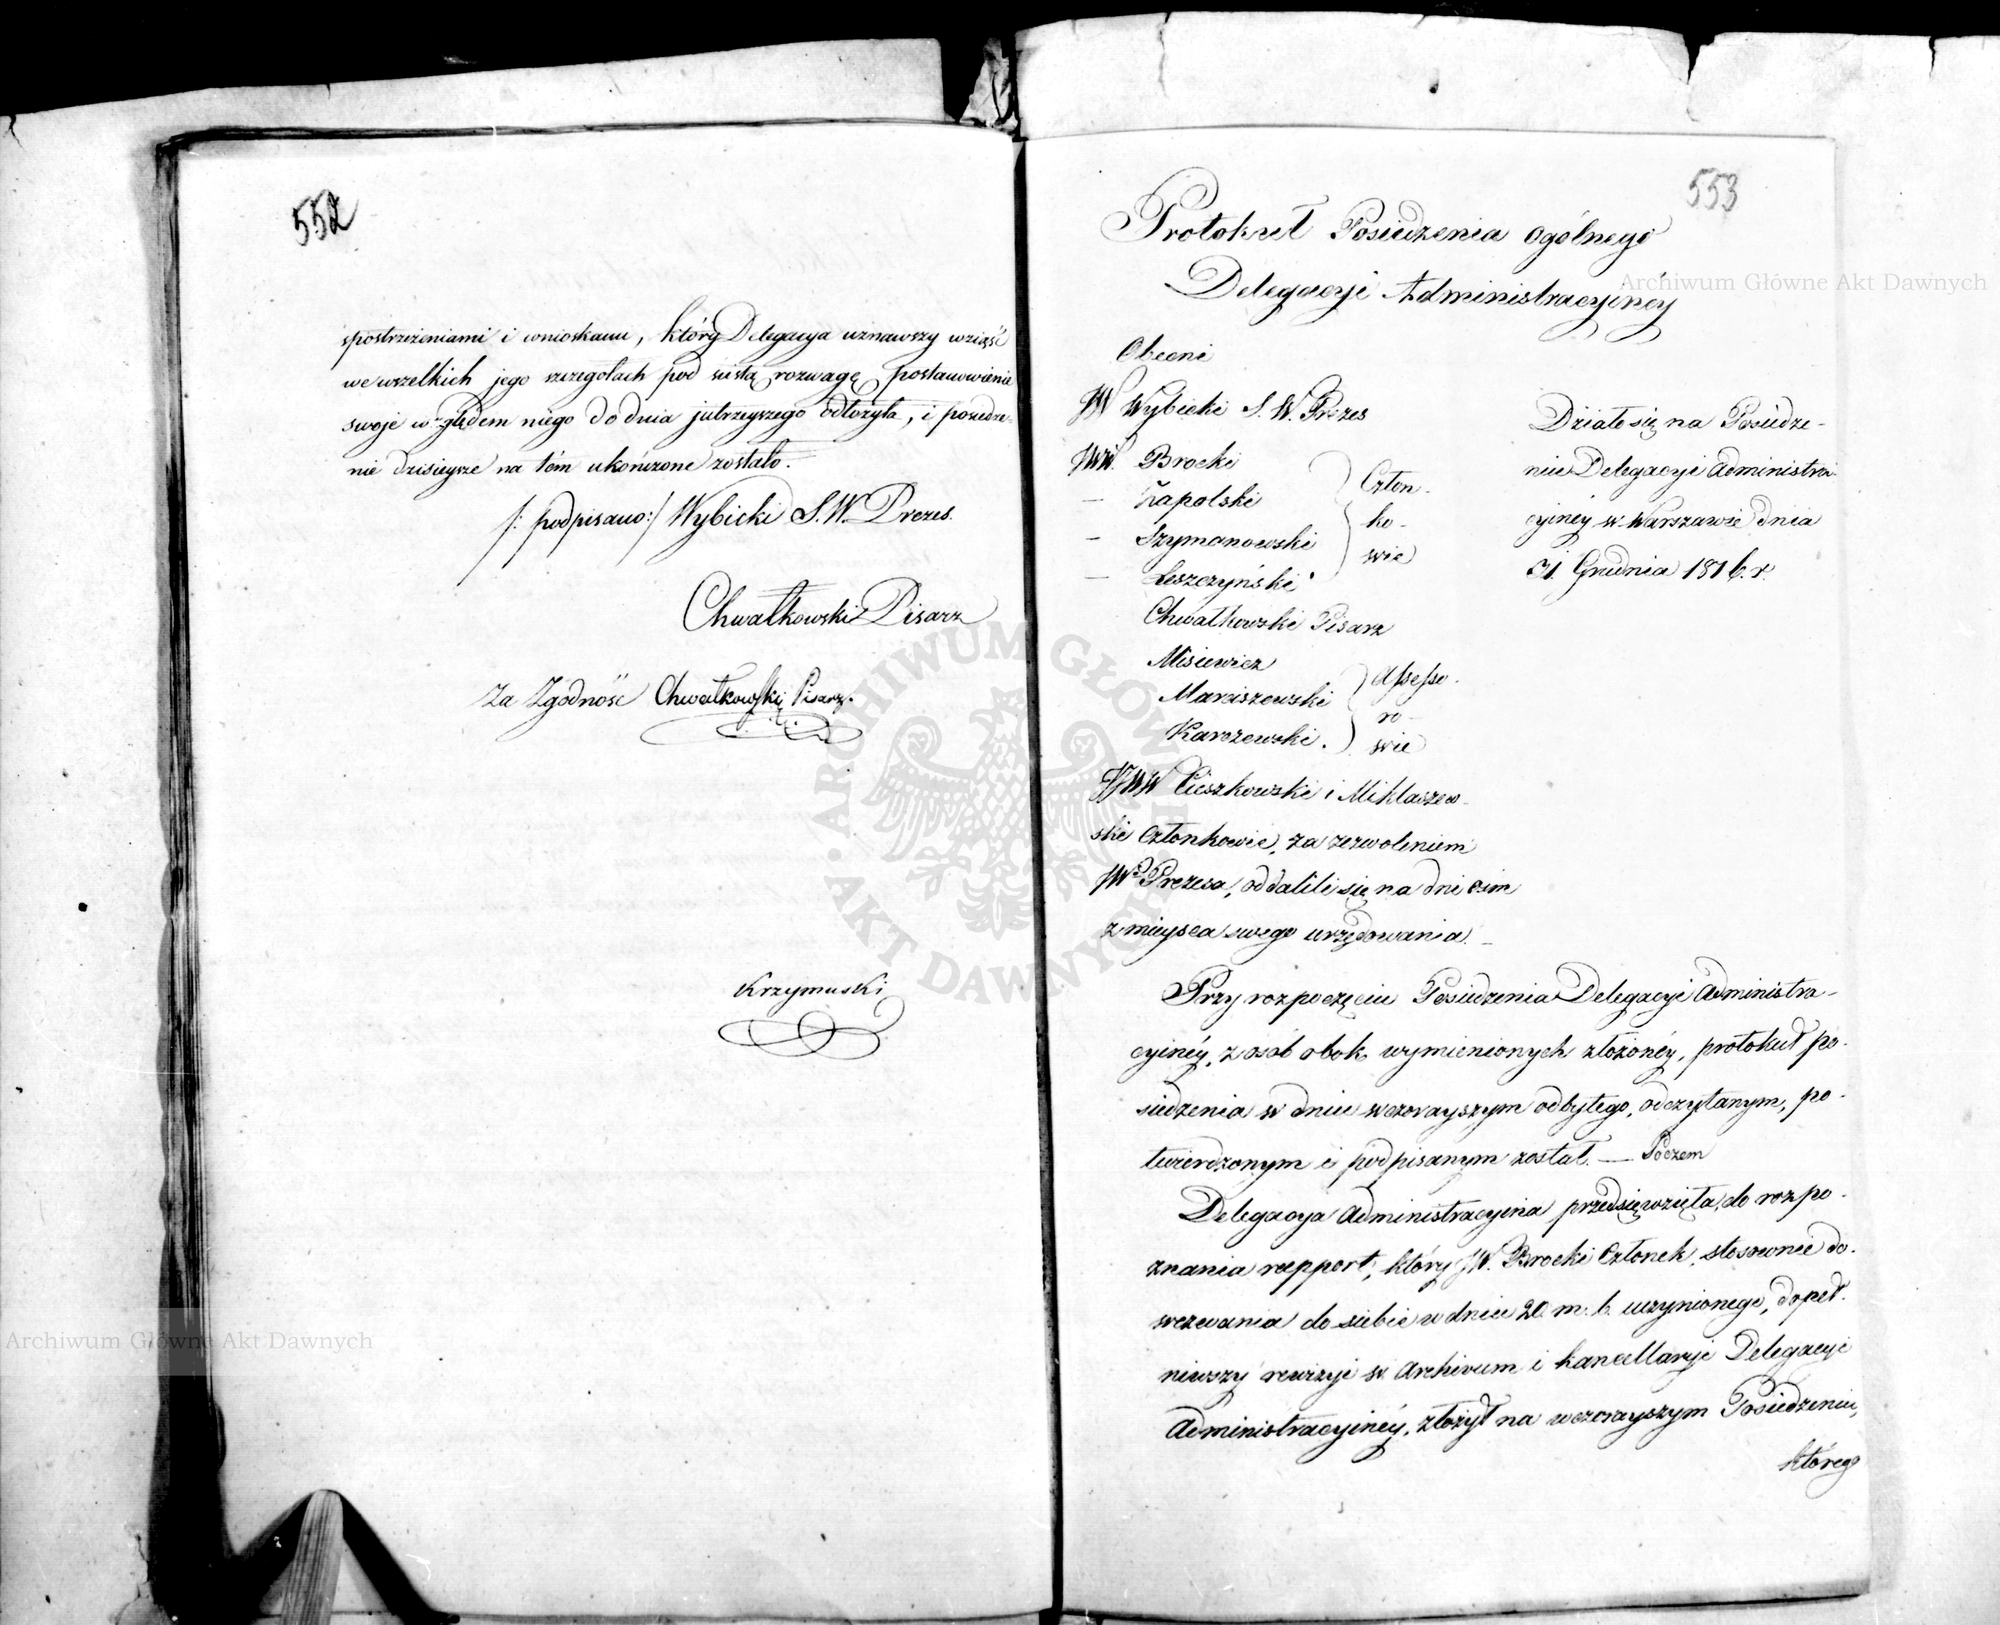 552
spostrzeżeniami i wnioskami, który Delegacya uznawszy wziąść
we wszelkich jego szczegołach pod ścisłą rozwagę, postanowienie
swoje względem niego do dnia jutrzeyszego odłożyła, i posiedze-
nie dzisieysze na tém ukończone zostało.
/: podpisano :/ Wybicki S. W. Prezes.
Chwałkowski Pisarz
Za Zgodność Chwałkowski Pisarz.
Krzymuski
553
Protokuł Posiedzenia ogólnego
Delegacyi Administracyiney
Obecni
JW Wybicki S. W. Prezes
JWW. Brocki
— Zapolski
— Szymanowski
— Leszczyński
Człon-
ko-
wie
Chwałkowski Pisarz
Misiewicz
Marciszewski
Karczewski.
Assesso-
ro-
wie
JWW Cieszkowski i Miklaszew-
ski Członkowie, za zezwoleniem
JWo Prezesa, oddalili się na dni
z mieysca swego urzędowania. —
Działo się na Posiedze-
niu Delegacyi Administra-
cyiney w Warszawie dnia
31. Grudnia 1816. r.
Przy rozpoczęciu Posiedzenia Delegacyi Administra-
cyiney, z osób obok wymienionych złożonéy, protokuł po-
siedzenia w dniu wczorayszym odbytego, odczytanym, po-
twierdzonym i podpisanym został. — Poczem
Delegacya Administracyina przedsięwzięła, do rozpo-
znania rapport, który JW. Brocki Członek, stosownie do
wezwania do siebie w dniu 20 m. b. uczynionego, dopeł-
niwszy rewizyi w Archivum i kancellaryi Delegacyi
Administracyinéy, złożył na wczorayszym Posiedzeniu,
którego
Archiwum Główne Akt Dawnych
Archiwum Główne Akt Dawnych
ARCHIWUM GŁÓWNE AKT DAWNYCH